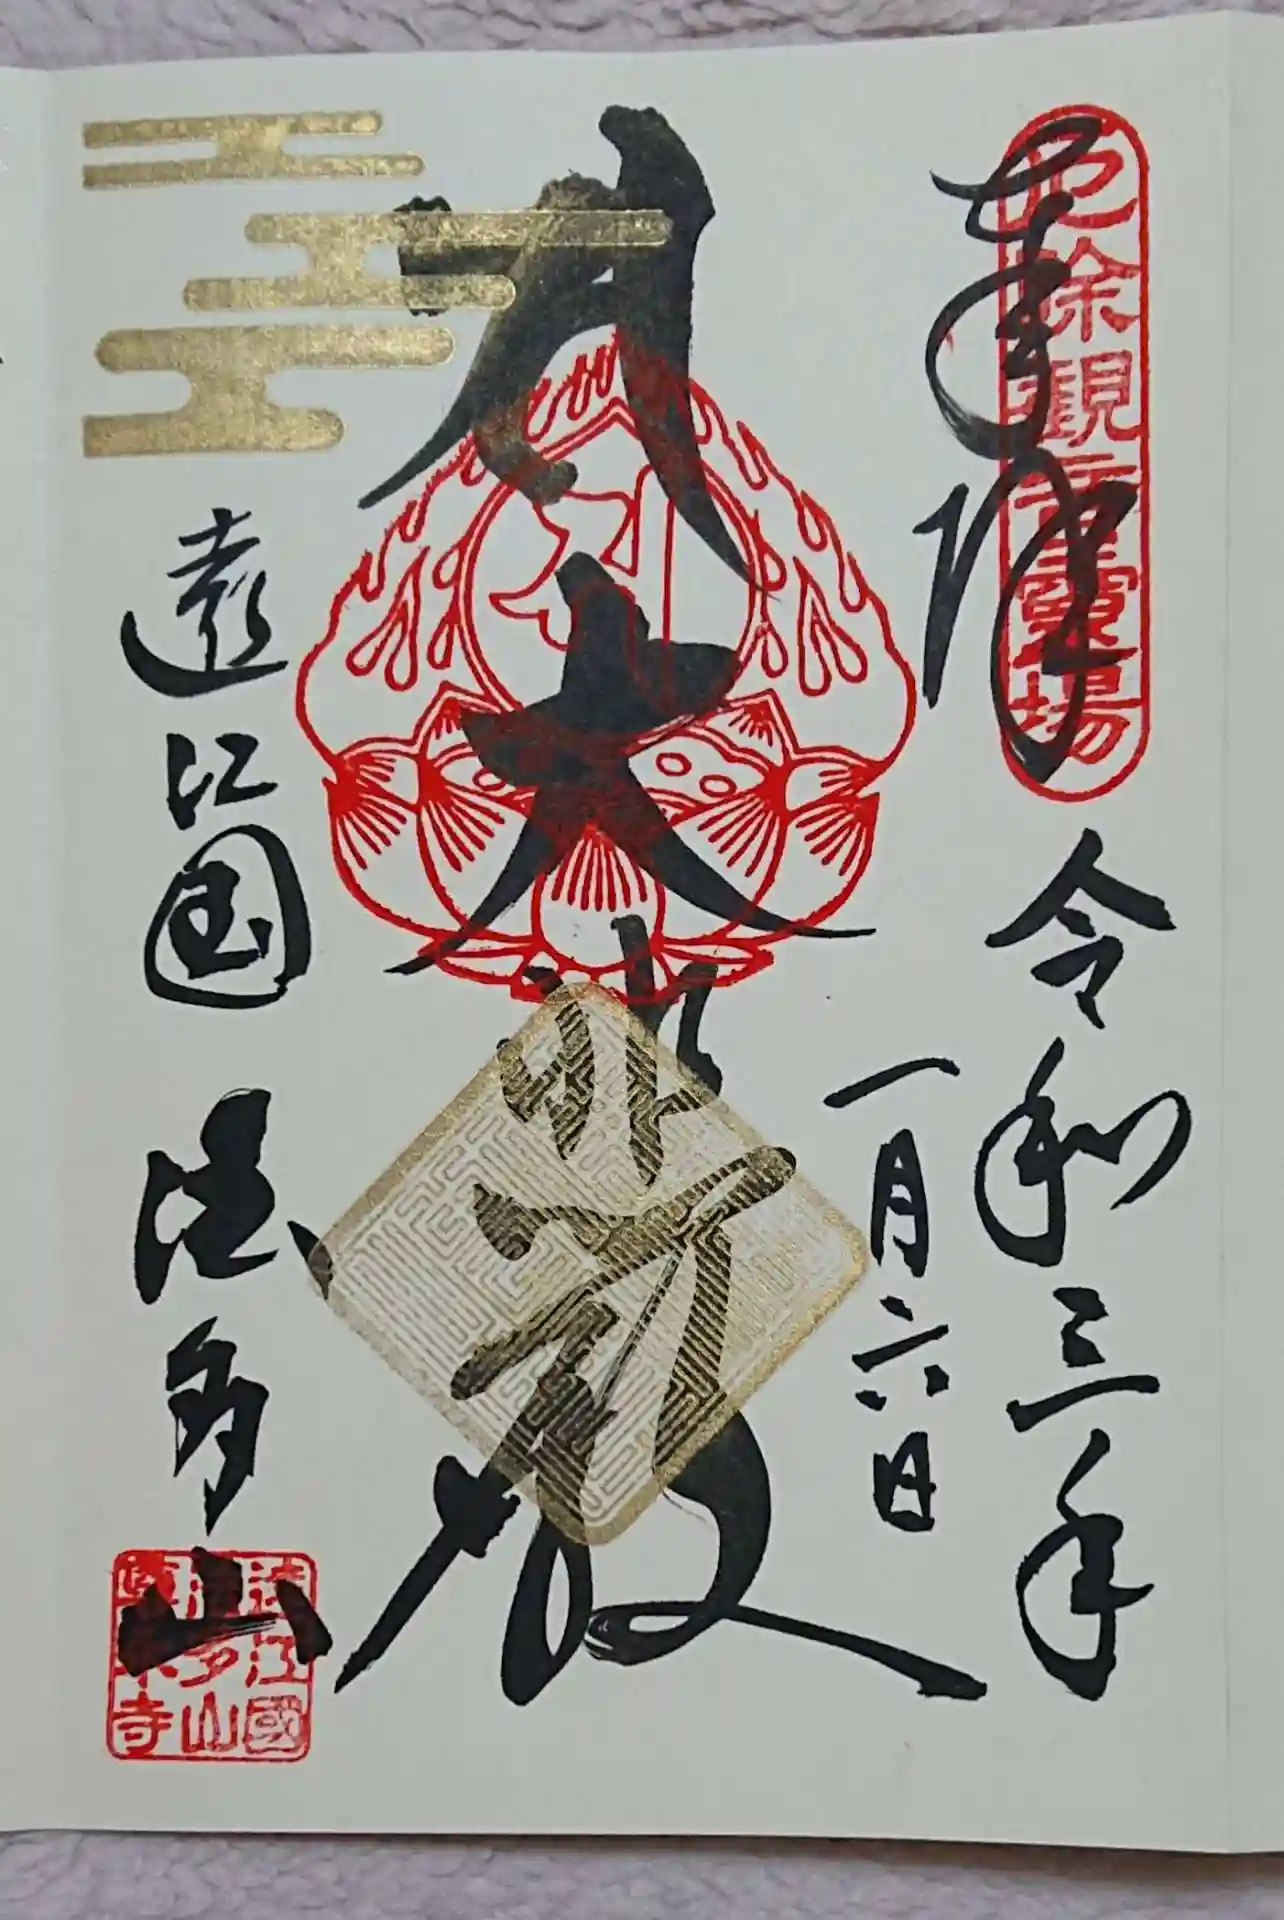 奉拝
厄除観音霊場
令和三年
一月六日
大悲殿
遠江国 法多山
遠江國
法多山
尊永寺